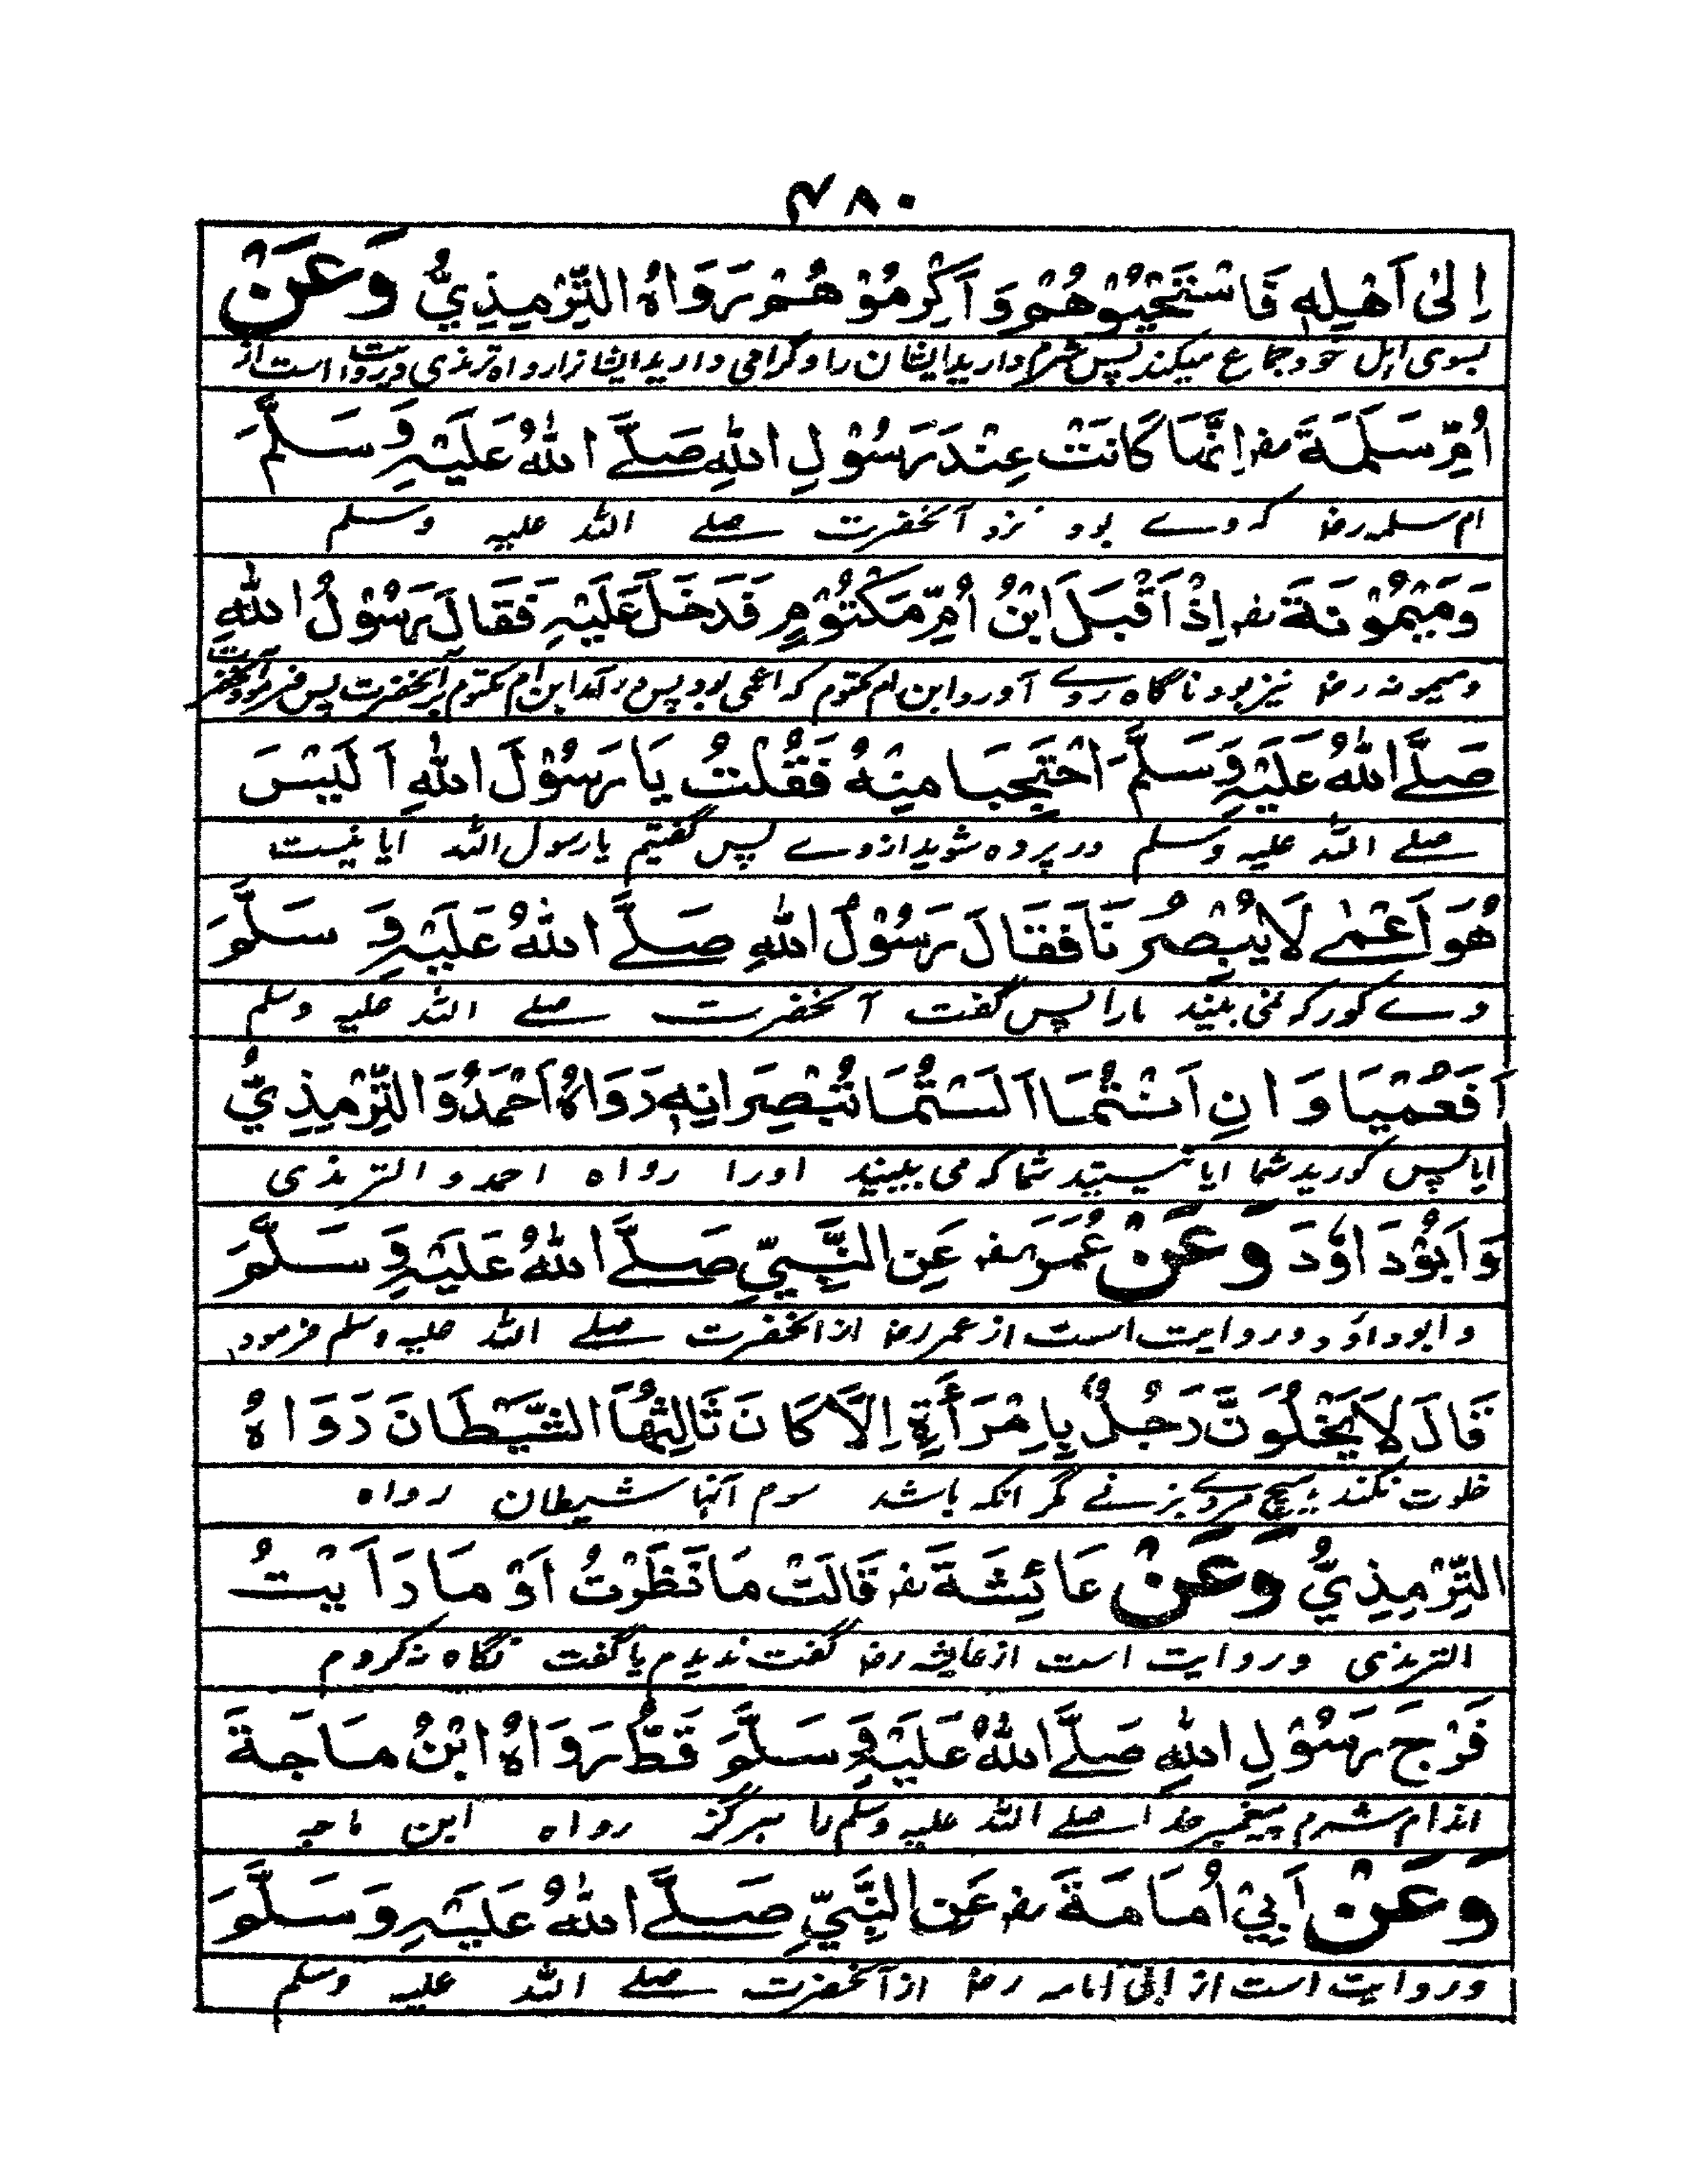 ۴۸۰
اِلىٰ اَهْلِهٖ فَاسْتَحْيُوْهُمْ وَاَكْرِمُوْهُمْ رَوَاهُ التِّرْمِذِيُّ وَعَنْ
بسوی اہل خود جماع میکند پس شرم دارید ایشان را و گرامی دارید ایشانرا رواه ترمذی و روایت است از
اُمِّ سَلَمَةَ رضہ اِنَّهَا كَانَتْ عِنْدَ رَسُوْلِ اللهِ صَلَّے اللهُ عَلَيْهِ وَسَلَّمَ
ام سلمہ رضہ کہ وے بود نزد آنحضرت صلے اللہ علیہ وسلم
وَمَيْمُوْنَةَ رضہ اِذْ اَقْبَلَ ابْنُ اُمِّ مَكْتُوْمٍ فَدَخَلَ عَلَيْهِ فَقَالَ رَسُوْلُ اللهِ
و میمونہ رضہ نیز بود ناگاه روے آورد ابن ام مکتوم کہ اعمی بود پس درآمد ابن ام مکتوم بر آنحضرت پس فرمود آنحضرت
صَلَّے اللهُ عَلَيْهِ وَسَلَّمَ احْتَجِبَا مِنْهُ فَقُلْتُ يَا رَسُوْلَ اللهِ اَلَيْسَ
صلے اللہ علیہ وسلم در پرده شوید از وے پس گفتیم یا رسول اللہ ایا نیست
هُوَ اَعْمٰے لَا يُبْصِرُنَا فَقَالَ رَسُوْلُ اللهِ صَلَّے اللهُ عَلَيْهِ وَسَلَّمَ
وے کور کہ نمی بیند مارا پس گفت آنحضرت صلے اللہ علیہ وسلم
اَفَعُمْيَا وَانِ اَنْتُمَا اَلَسْتُمَا تُبْصِرَانِهٖ رَوَاهُ اَحْمَدُ وَالتِّرْمِذِيُّ
ایا پس کورید شما ایا نیستید شما کہ می بینید اورا رواه احمد و الترمذی
وَاَبُوْدَاوٗدَ وَعَنْ عُمَرَ رضہ عَنِ النَّبِيِّ صَلَّے اللهُ عَلَيْهِ وَسَلَّمَ
و ابوداؤد و روایت است از عمر رضہ از آنحضرت صلے اللہ علیہ وسلم فرمود
قَالَ لَا يَخْلُوَنَّ رَجُلٌ بِامْرَأَةٍ اِلَّا كَانَ ثَالِثُهَا الشَّيْطَانَ رَوَاهُ
خلوت نکند ہیچ مردے بزنے مگر آنکہ باشد سوم آنہا شیطان رواه
التِّرْمِذِيُّ وَعَنْ عَائِشَةَ رضہ قَالَتْ مَا نَظَرْتُ اَوْ مَا رَاَيْتُ
الترمذی و روایت است از عایشہ رضہ گفت ندیدم یا گفت نگاه نہ کردم
فَرْجَ رَسُوْلِ اللهِ صَلَّے اللهُ عَلَيْهِ وَسَلَّمَ قَطُّ رَوَاهُ ابْنُ مَاجَةَ
اندام شرم پیغمبر خدا صلے اللہ علیہ وسلم را ہرگز رواه ابن ماجہ
وَعَنْ اَبِيْ اُمَامَةَ رضہ عَنِ النَّبِيِّ صَلَّے اللهُ عَلَيْهِ وَسَلَّمَ
و روایت است از ابی امامہ رضہ از آنحضرت صلے اللہ علیہ وسلم